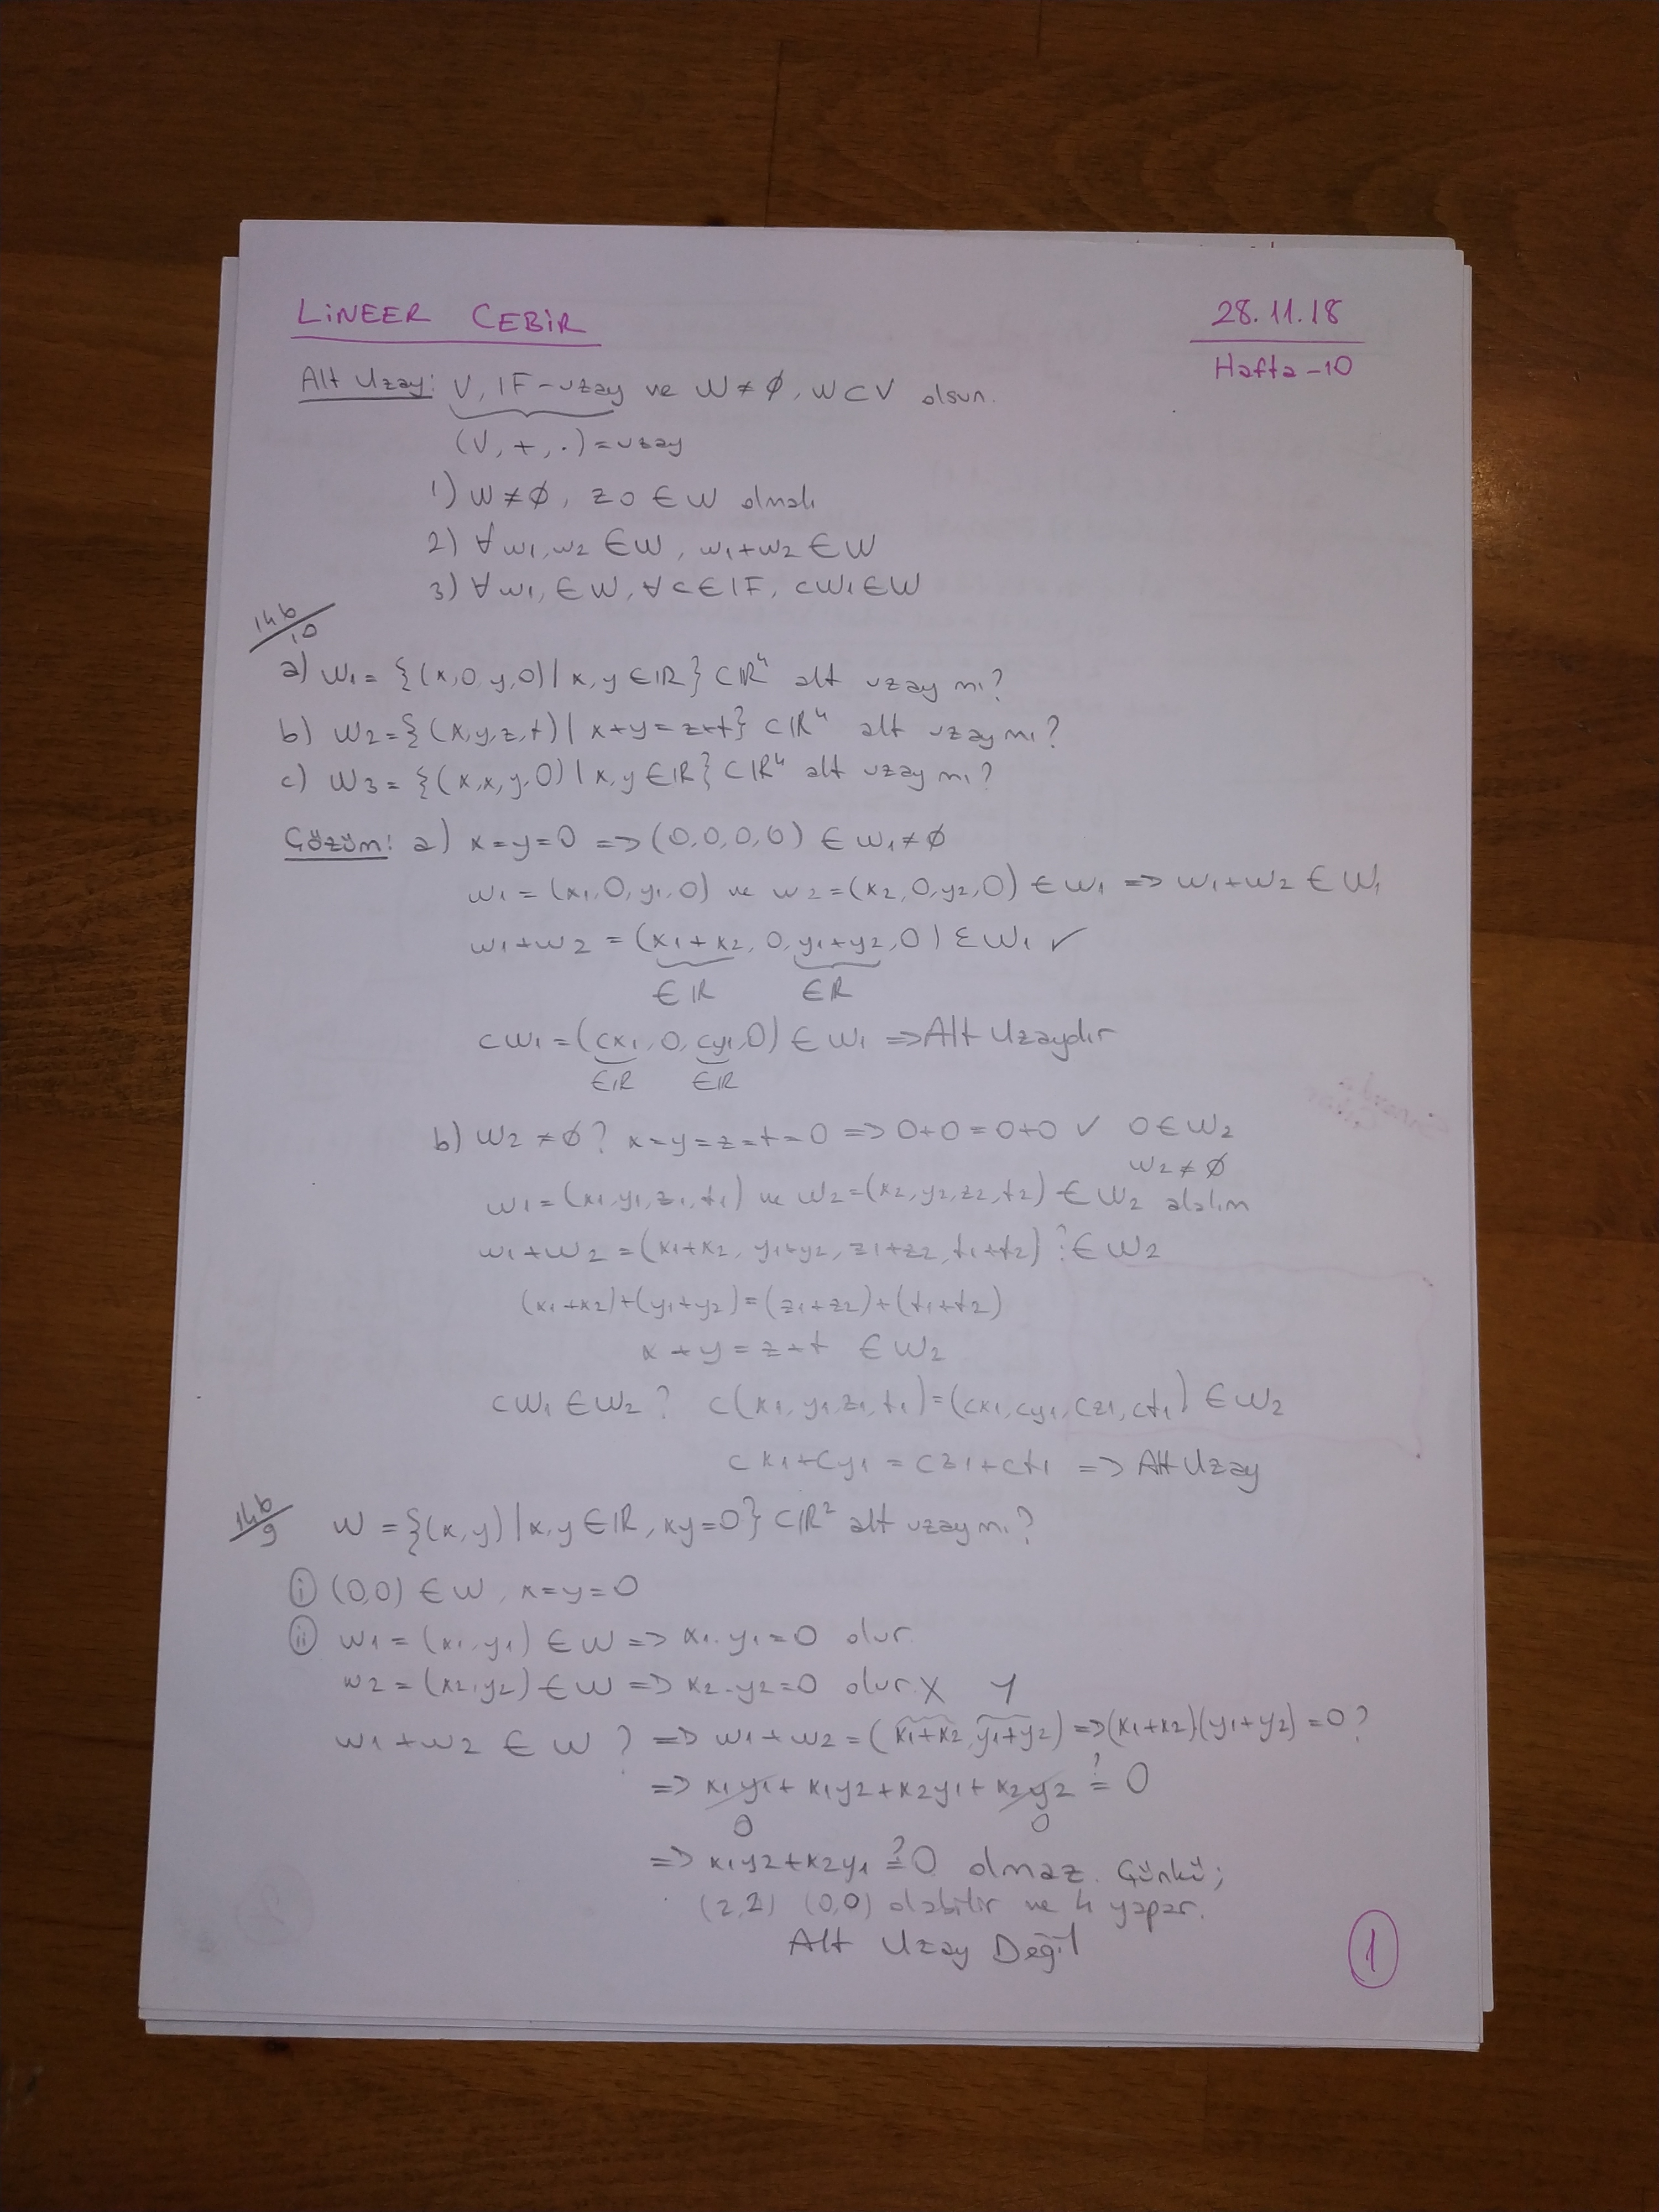 LİNEER CEBİR
28.11.18
Hafta-10
Alt Uzay: V, IF-uzay ve W≠∅, W⊂V olsun.
(V, +, ·)=uzay
1) W≠∅, z0 ∈ W olmalı
2) ∀ w1, w2 ∈ W, w1+w2 ∈ W
3) ∀ w1, ∈ W, ∀ c ∈ IF, cw1 ∈ W
a) W1 = {(x,0,y,0) | x,y ∈ IR} ⊂ IR⁴ alt uzay mı?
b) W2 = {(x,y,z,t) | x+y=z+t} ⊂ IR⁴ alt uzay mı?
c) W3 = {(x,x,y,0) | x,y ∈ IR} ⊂ IR⁴ alt uzay mı?
Çözüm: a) x=y=0 => (0,0,0,0) ∈ W1≠∅
w1 = (x1,0,y1,0) ve w2=(x2,0,y2,0) ∈ W1 => w1+w2 ∈ W1
w1+w2 = (x1+x2, 0, y1+y2, 0) ∈ W1 ✓
∈ IR ∈ IR
cw1 = (cx1, 0, cy1, 0) ∈ W1 => Alt Uzaydır
∈ IR ∈ IR
b) W2 ≠ ∅? x=y=z=t=0 => 0+0=0+0 ✓ 0 ∈ W2
W2≠∅
w1 = (x1,y1,z1,t1) ve w2=(x2,y2,z2,t2) ∈ W2 alalım
w1+w2 = (x1+x2, y1+y2, z1+z2, t1+t2) ?∈ W2
(x1+x2)+(y1+y2)=(z1+z2)+(t1+t2)
x+y = z+t ∈ W2
cw1 ∈ W2? c(x1,y1,z1,t1)=(cx1,cy1,cz1,ct1) ∈ W2
cx1+cy1 = cz1+ct1 => Alt Uzay
W = {(x,y) | x,y ∈ IR, xy=0} ⊂ IR² alt uzay mı?
i (0,0) ∈ W, x=y=0
ii w1 = (x1,y1) ∈ W => x1.y1=0 olur
w2 = (x2,y2) ∈ W => x2.y2=0 olur
x y
w1+w2 ∈ W? => w1+w2 = (x1+x2, y1+y2) => (x1+x2)(y1+y2)=0?
=> x1y1 + x1y2 + x2y1 + x2y2 ?= 0
0 0
=> x1y2+x2y1 ?= 0 olmaz. Çünkü;
(2,2) (0,0) olabilir ve 4 yapar.
Alt Uzay Değil
1